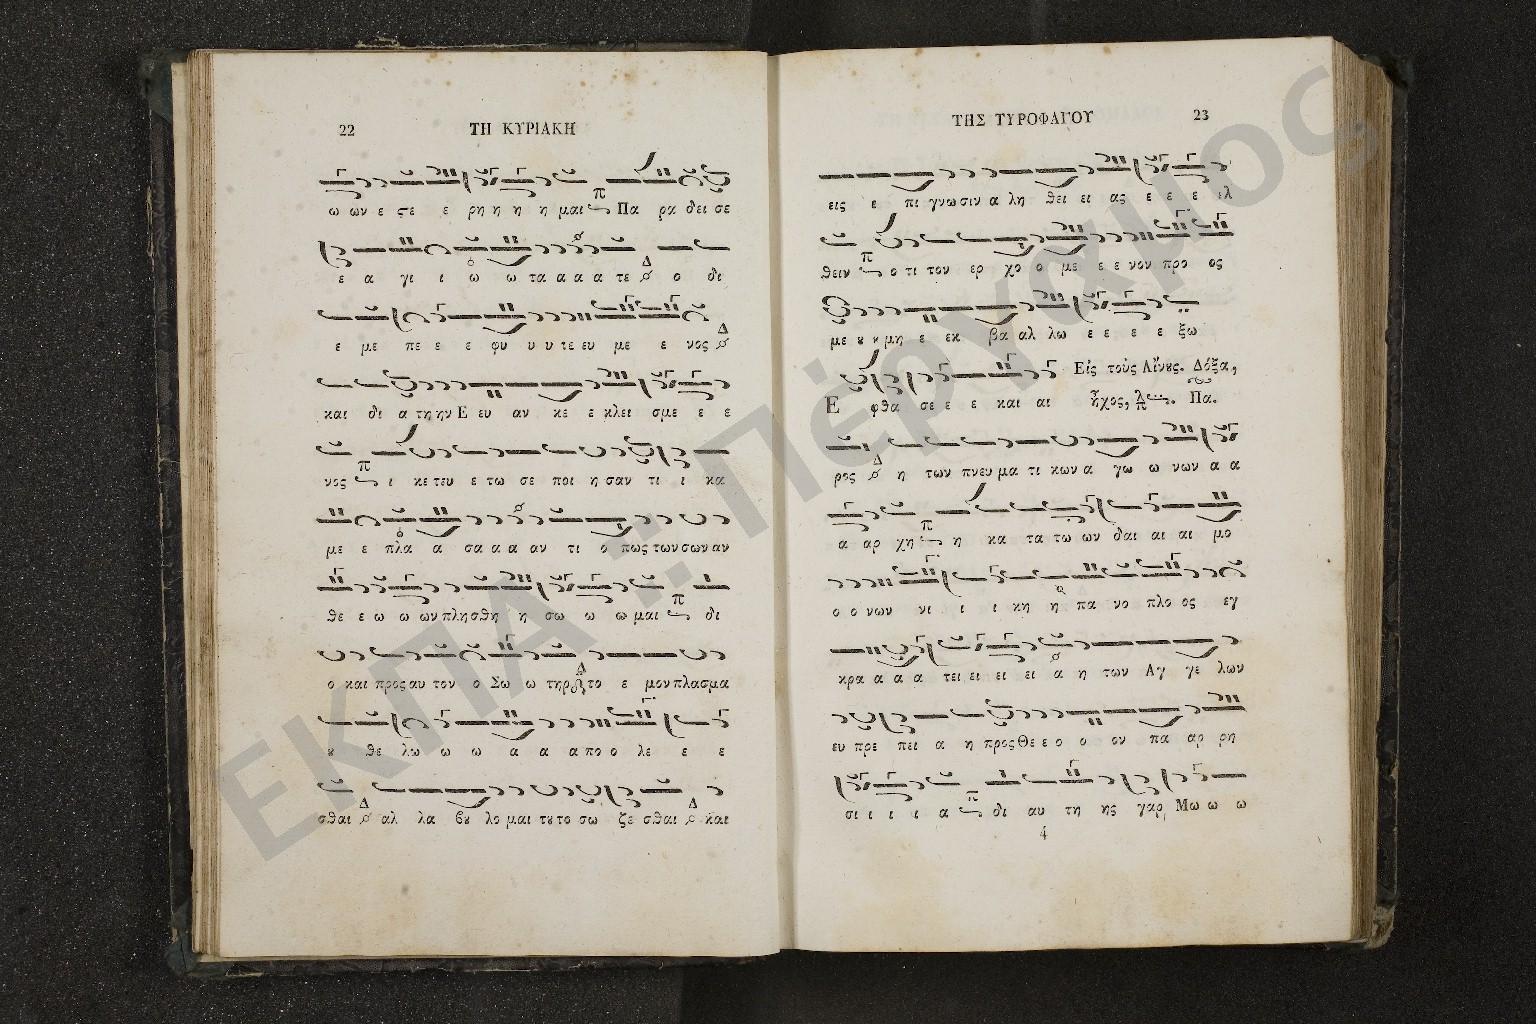 22
ΤΗ ΚΥΡΙΑΚΗ
ω ων ε ϛε ε ρη η η η μαι Πα ρα δει σε
ε α γι ι ω ω τα α α α τε ο δι
ε με πε ε ε φυ υ υ τε ευ με ε νος
και δι α τη ην Ε ευ αν κε ε κλει σμε ε ε
νος ι κε τευ ε τω σε ποι η σαν τι ι κα
με ε πλα α σα α α αν τι ο πως των σων αν
θε ε ω ω ων πλησθη η σω ω ω μαι δι
ο και προς αυ τον ο Σω ω τηρ το ε μον πλασμα
ȣ θε λω ω ω α α α πο ο λε ε ε
σθαι αλ λα βȣ λο μαι τȣτο σω ζε σθαι και
ΤΗΣ ΤΥΡΟΦΑΓΟΥ
23
εις ε πι γνωσιν α λη θει ει ας ε ε ε ελ
θειν ο τι τον ερ χο ο με ε ε νον προ ος
με ȣ κ μη ε εκ βα αλ λω ε ε ε ε ξω
Εἰς τοὺς Αἴνȣς. Δόξα,
Ε φθα σε ε ε και αι ἦχος, Πα.
ρος η των πνευ μα τι κων α γω ω νων α α
α αρ χη η κα τα τω ων δαι αι αι μο
ο ο νων νι ι ι κη η πα νο πλο ος εγ
κρα α α α τει ει ει ει α η των Αγ γε λων
ευ πρε πει α η προς Θε ε ο ο ον πα αρ ρη
σι ι ι ι α δι αυ τη ης γαρ Μω ω ω
4
ΕΚΠΑ : Πέργαμος